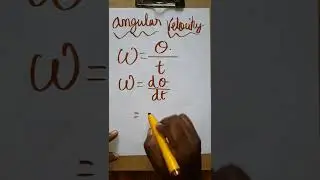 angular velocity
ω = θ/t
ω = dθ/dt
=